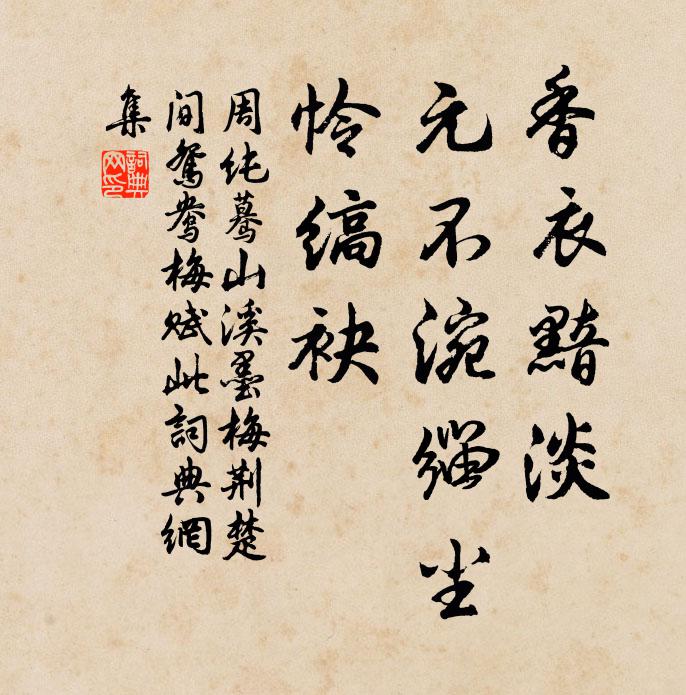 香衣黯淡
元不涴缁尘
怜缟袂
周纯蓦山溪墨梅荆楚
间鸳鸯梅赋此詞典網
集
詞典網印